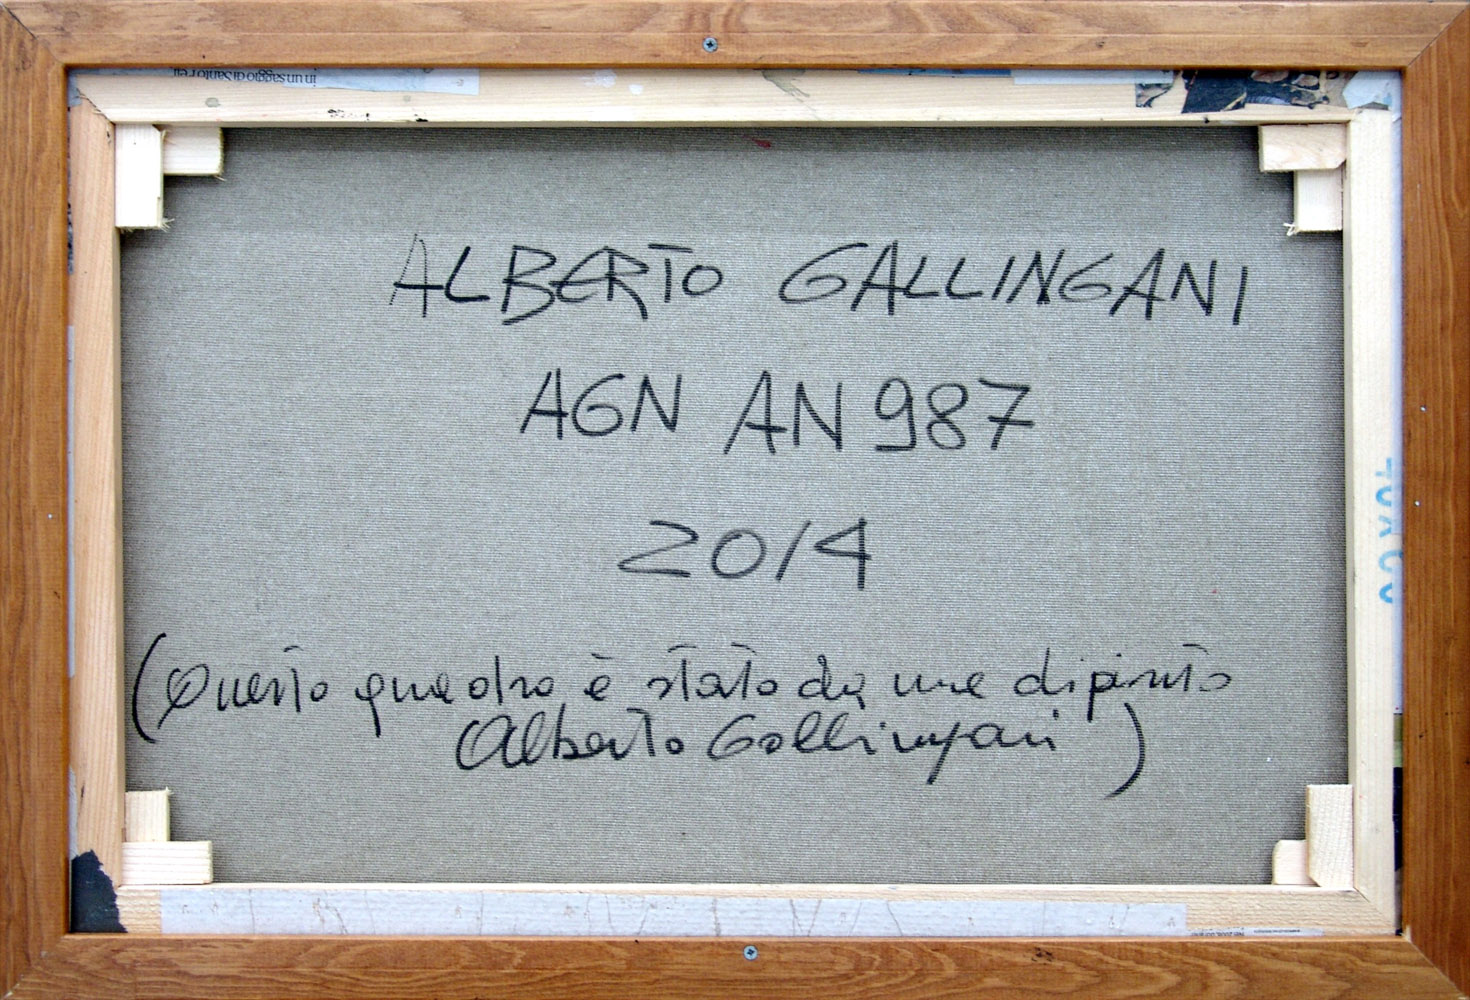 in un saggio di Santorelli
ALBERTO GALLINGANI
AGN AN 987
2014
(Questo quadro è stato da me dipinto
Alberto Gallingani)